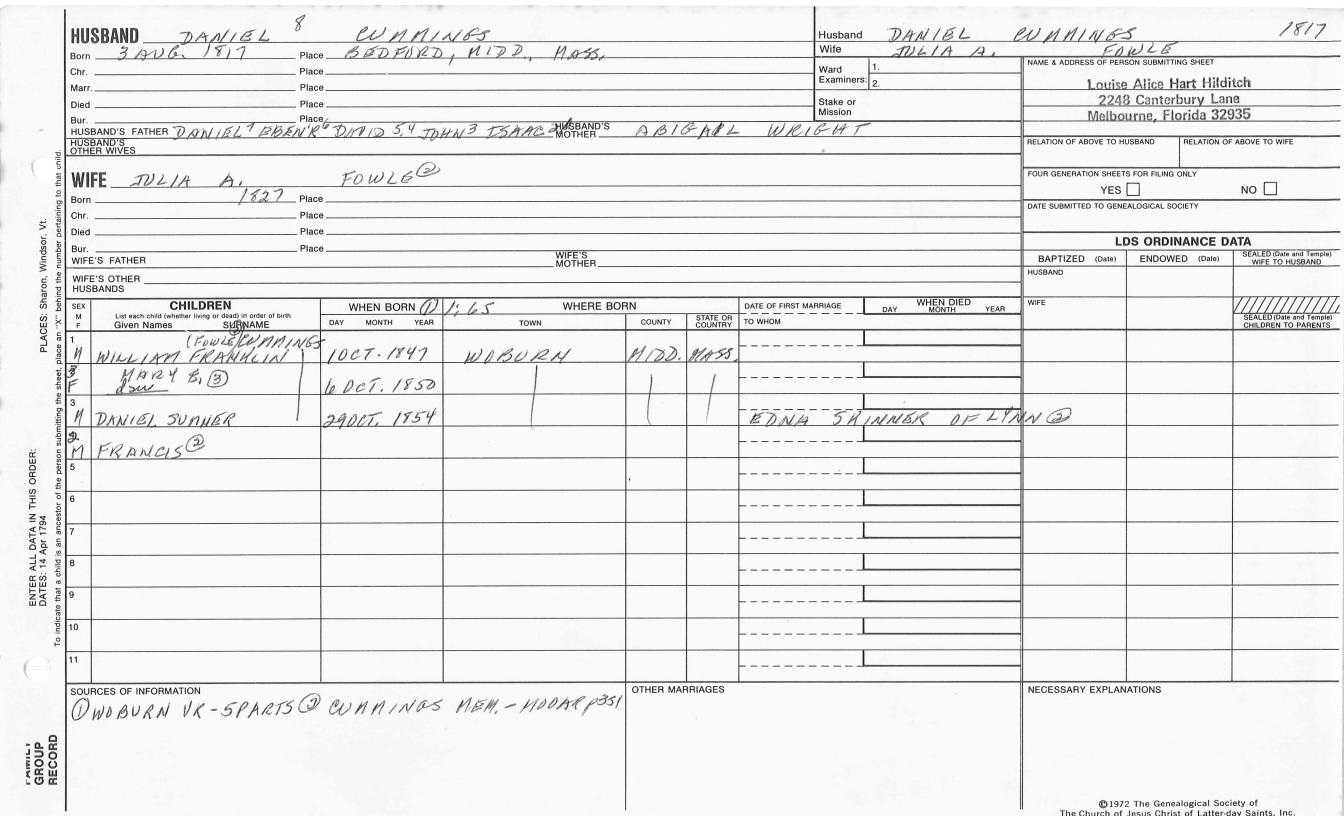 HUSBAND DANIEL 8 CUMMINGS
Born 3 AUG. 1817 Place BEDFORD, MIDD., MASS.
Chr. Place
Marr. Place
Died Place
Bur. Place
HUSBAND'S FATHER DANIEL7 EBEN'R6 DAVID 5,4 JOHN3 ISAAC HUSBAND'S MOTHER ABIGAIL WRIGHT
HUSBAND'S OTHER WIVES
WIFE JULIA A. FOWLE②
Born 1827 Place
Chr. Place
Died Place
Bur. Place
WIFE'S FATHER WIFE'S MOTHER
WIFE'S OTHER HUSBANDS
Husband DANIEL CUMMINGS 1817
Wife JULIA A. FOWLE
Ward Examiners: 1.
2.
Stake or Mission
NAME & ADDRESS OF PERSON SUBMITTING SHEET
Louise Alice Hart Hilditch
2248 Canterbury Lane
Melbourne, Florida 32935
RELATION OF ABOVE TO HUSBAND RELATION OF ABOVE TO WIFE
FOUR GENERATION SHEETS FOR FILING ONLY
YES NO
DATE SUBMITTED TO GENEALOGICAL SOCIETY
LDS ORDINANCE DATA
BAPTIZED (Date) ENDOWED (Date) SEALED (Date and Temple) WIFE TO HUSBAND
HUSBAND
WIFE
SEALED (Date and Temple) CHILDREN TO PARENTS
SEX M F
CHILDREN
List each child (whether living or dead) in order of birth
Given Names SURNAME
WHEN BORN ① 1:65
DAY MONTH YEAR
WHERE BORN
TOWN COUNTY STATE OR COUNTRY
DATE OF FIRST MARRIAGE
TO WHOM
WHEN DIED
DAY MONTH YEAR
1 (FOWLE) CUMMINGS
M WILLIAM FRANKLIN 1 OCT. 1847 WOBURN MIDD. MASS.
MARY E. ③
F dau 6 OCT. 1850
3
M DANIEL SUMNER 29 OCT. 1854 EDNA SKINNER OF LYNN ②
M FRANCIS②
5
6
7
8
9
10
11
SOURCES OF INFORMATION
① WOBURN VR - 5 PARTS ② CUMMINGS MEM. - MOOAR p351
OTHER MARRIAGES
NECESSARY EXPLANATIONS
©1972 The Genealogical Society of
The Church of Jesus Christ of Latter-day Saints, Inc.
ENTER ALL DATA IN THIS ORDER:
DATES: 14 Apr 1794 PLACES: Sharon, Windsor, Vt.
To indicate that a child is an ancestor of the person submitting the sheet, place an "X" behind the number pertaining to that child.
FAMILY
GROUP
RECORD